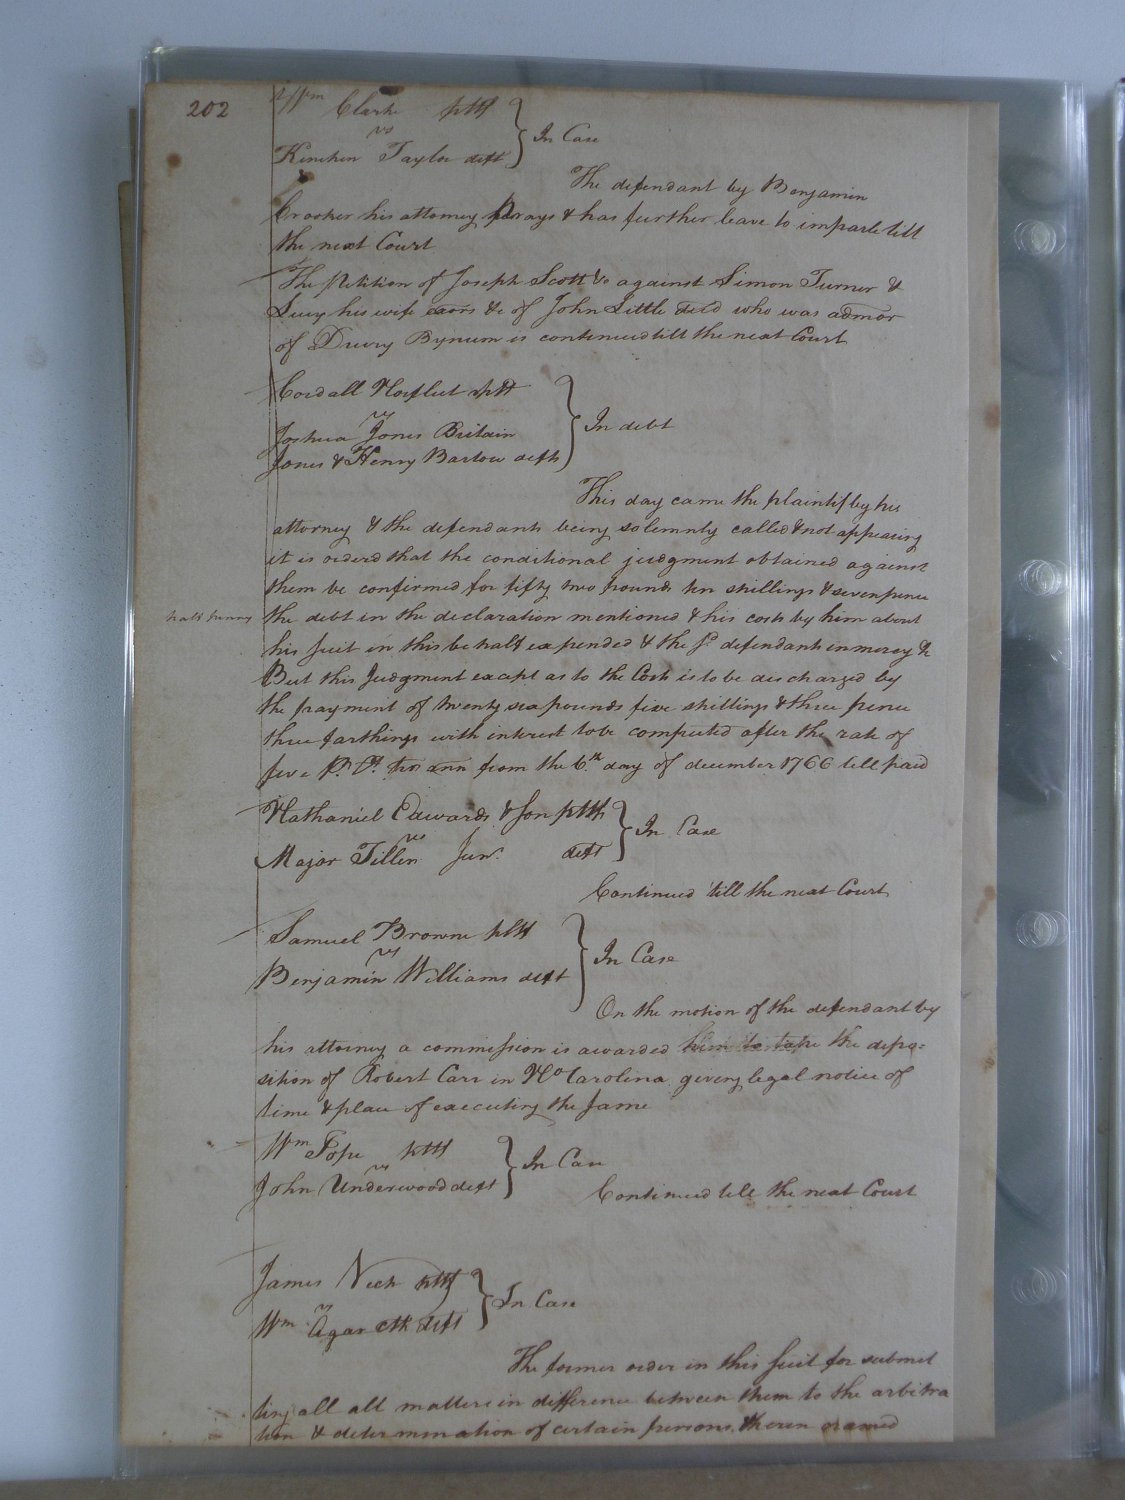 202
Wm Clark pltf
vs
In Case
Kinchen Taylor deft
The defendant by Benjamin
Crooker his attorney prays & has further leave to imparle till
the next Court
The petition of Joseph Scott &c against Simon Turner &
Lucy his wife exors &c of John Little decd who was admor
of Drury Bynum is continued till the next Court
Cordall Norfleet pltf
vs
Joshua Jones Britain
In debt
Jones & Henry Barlow defts
This day came the plaintif by his
attorney & the defendants being solemnly called & not appearing
it is orderd that the conditional judgment obtained against
them be confirmed for fifty two pounds ten shillings & seven pence
half penny
the debt in the declaration mentioned & his costs by him about
his suit in this behalf expended & the sd defendants in mercy &c
But this Judgment except as to the Costs is to be discharged by
the payment of twenty six pounds five shillings & three pence
three farthings with interest to be computed after the rate of
five Pr Ct from the 6th day of december 1766 till paid
Nathaniel Edwards & son pltfs
vs
In Case
Major Tiller Junr. deft
Continued till the next Court
Samuel Browne pltf
vs
In Case
Benjamin Williams deft
On the motion of the defendant by
his attorney a commission is awarded him to take the depo-
sition of Robert Carr in No Carolina giving legal notice of
time & place of executing the same
Wm Pope pltf
vs
In Case
John Underwood deft
Continued till the next Court
James Nech pltf
vs
In Case
Wm Agar Clk deft
The former order in this suit for submit
ting all all matters in difference between them to the arbitra
tion & determination of certain persons therein named